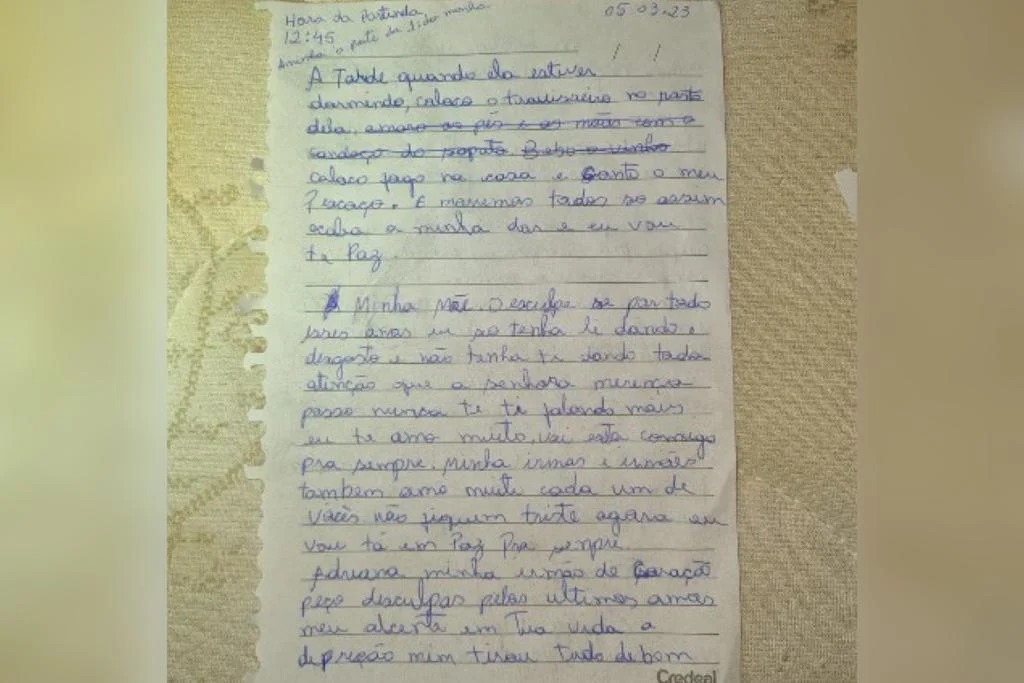 Hora da Partida,
12:45
05.03.23
A Tarde quando ela estiver
dormindo, coloco o travisseiro no rosto
dela, amaro os pés e as mãos com o
do sapato. Bebo o vinho
coloco fogo na casa e o meu
E morremos todos so assim
acaba a minha dor e eu vou
te Paz.
Minha Mãe. Desculpe se por todo
esses anos eu so tenha le dando
desgosto e não tenha te dando toda
atenção que a senhora merencia
posso nunca te ti falando mais
eu te amo muito, vai esta comigo
pra sempre. Minha irmas e irmões
tambem amo muito cada um de
vocês não fiquem triste agora eu
vou tá em Paz Pra senpre.
Adriana minha irmão de Coração
peço desculpas pelos ultimos
meu em Tua vida a
depreção mim tirou tudo de bom
Credeal